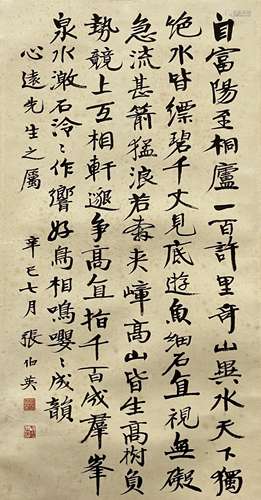 自富陽至桐廬一百許里奇山異水天下獨
絕水皆縹碧千丈見底遊魚細石直視無礙
急流甚箭猛浪若奔夾嶂高山皆生高樹負
勢競上互相軒邈爭高直指千百成羣峯
泉水激石泠〻作響好鳥相鳴嚶〻成韻
心遠先生之屬
辛巳七月 張伯英